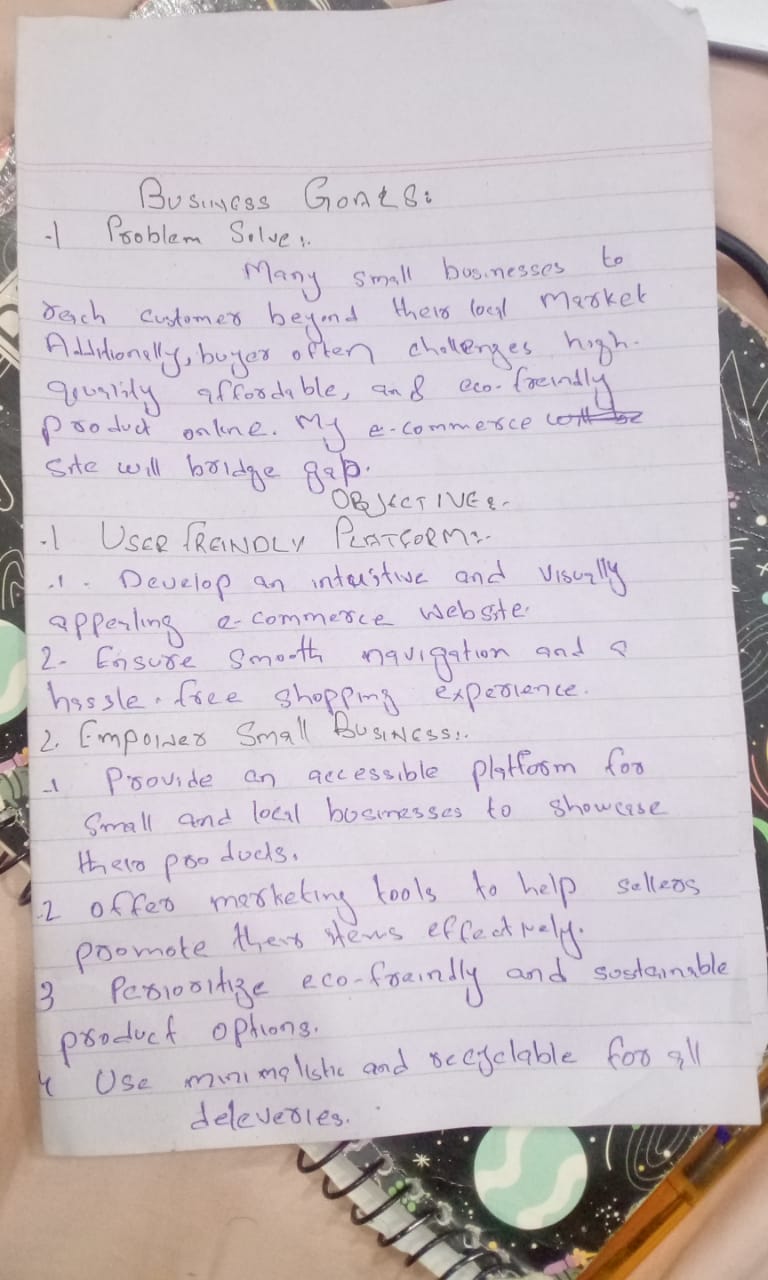 Business Goals:
-1 Problem Solve:.
Many small businesses to
reach customer beyond their local market
Additionally, buyer often challenges high-
quality affordable, and eco-freindly
product online. My e-commerce
site will bridge gap.
OBJECTIVE:-
.1 USER FREINDLY PLATFORM:-
.1. Develop an intuitive and visually
appealing e-commerce website.
2- Ensure smooth navigation and a
hassle-free shopping experience.
2. Empower Small Business:.
-1 Provide an accessible platform for
small and local businesses to showcase
their products.
.2 offer marketing tools to help sellers
promote their items effectively.
3 Perioritize eco-freindly and sustainable
product options.
4 Use minimalistic and recyclable for all
deleveries.